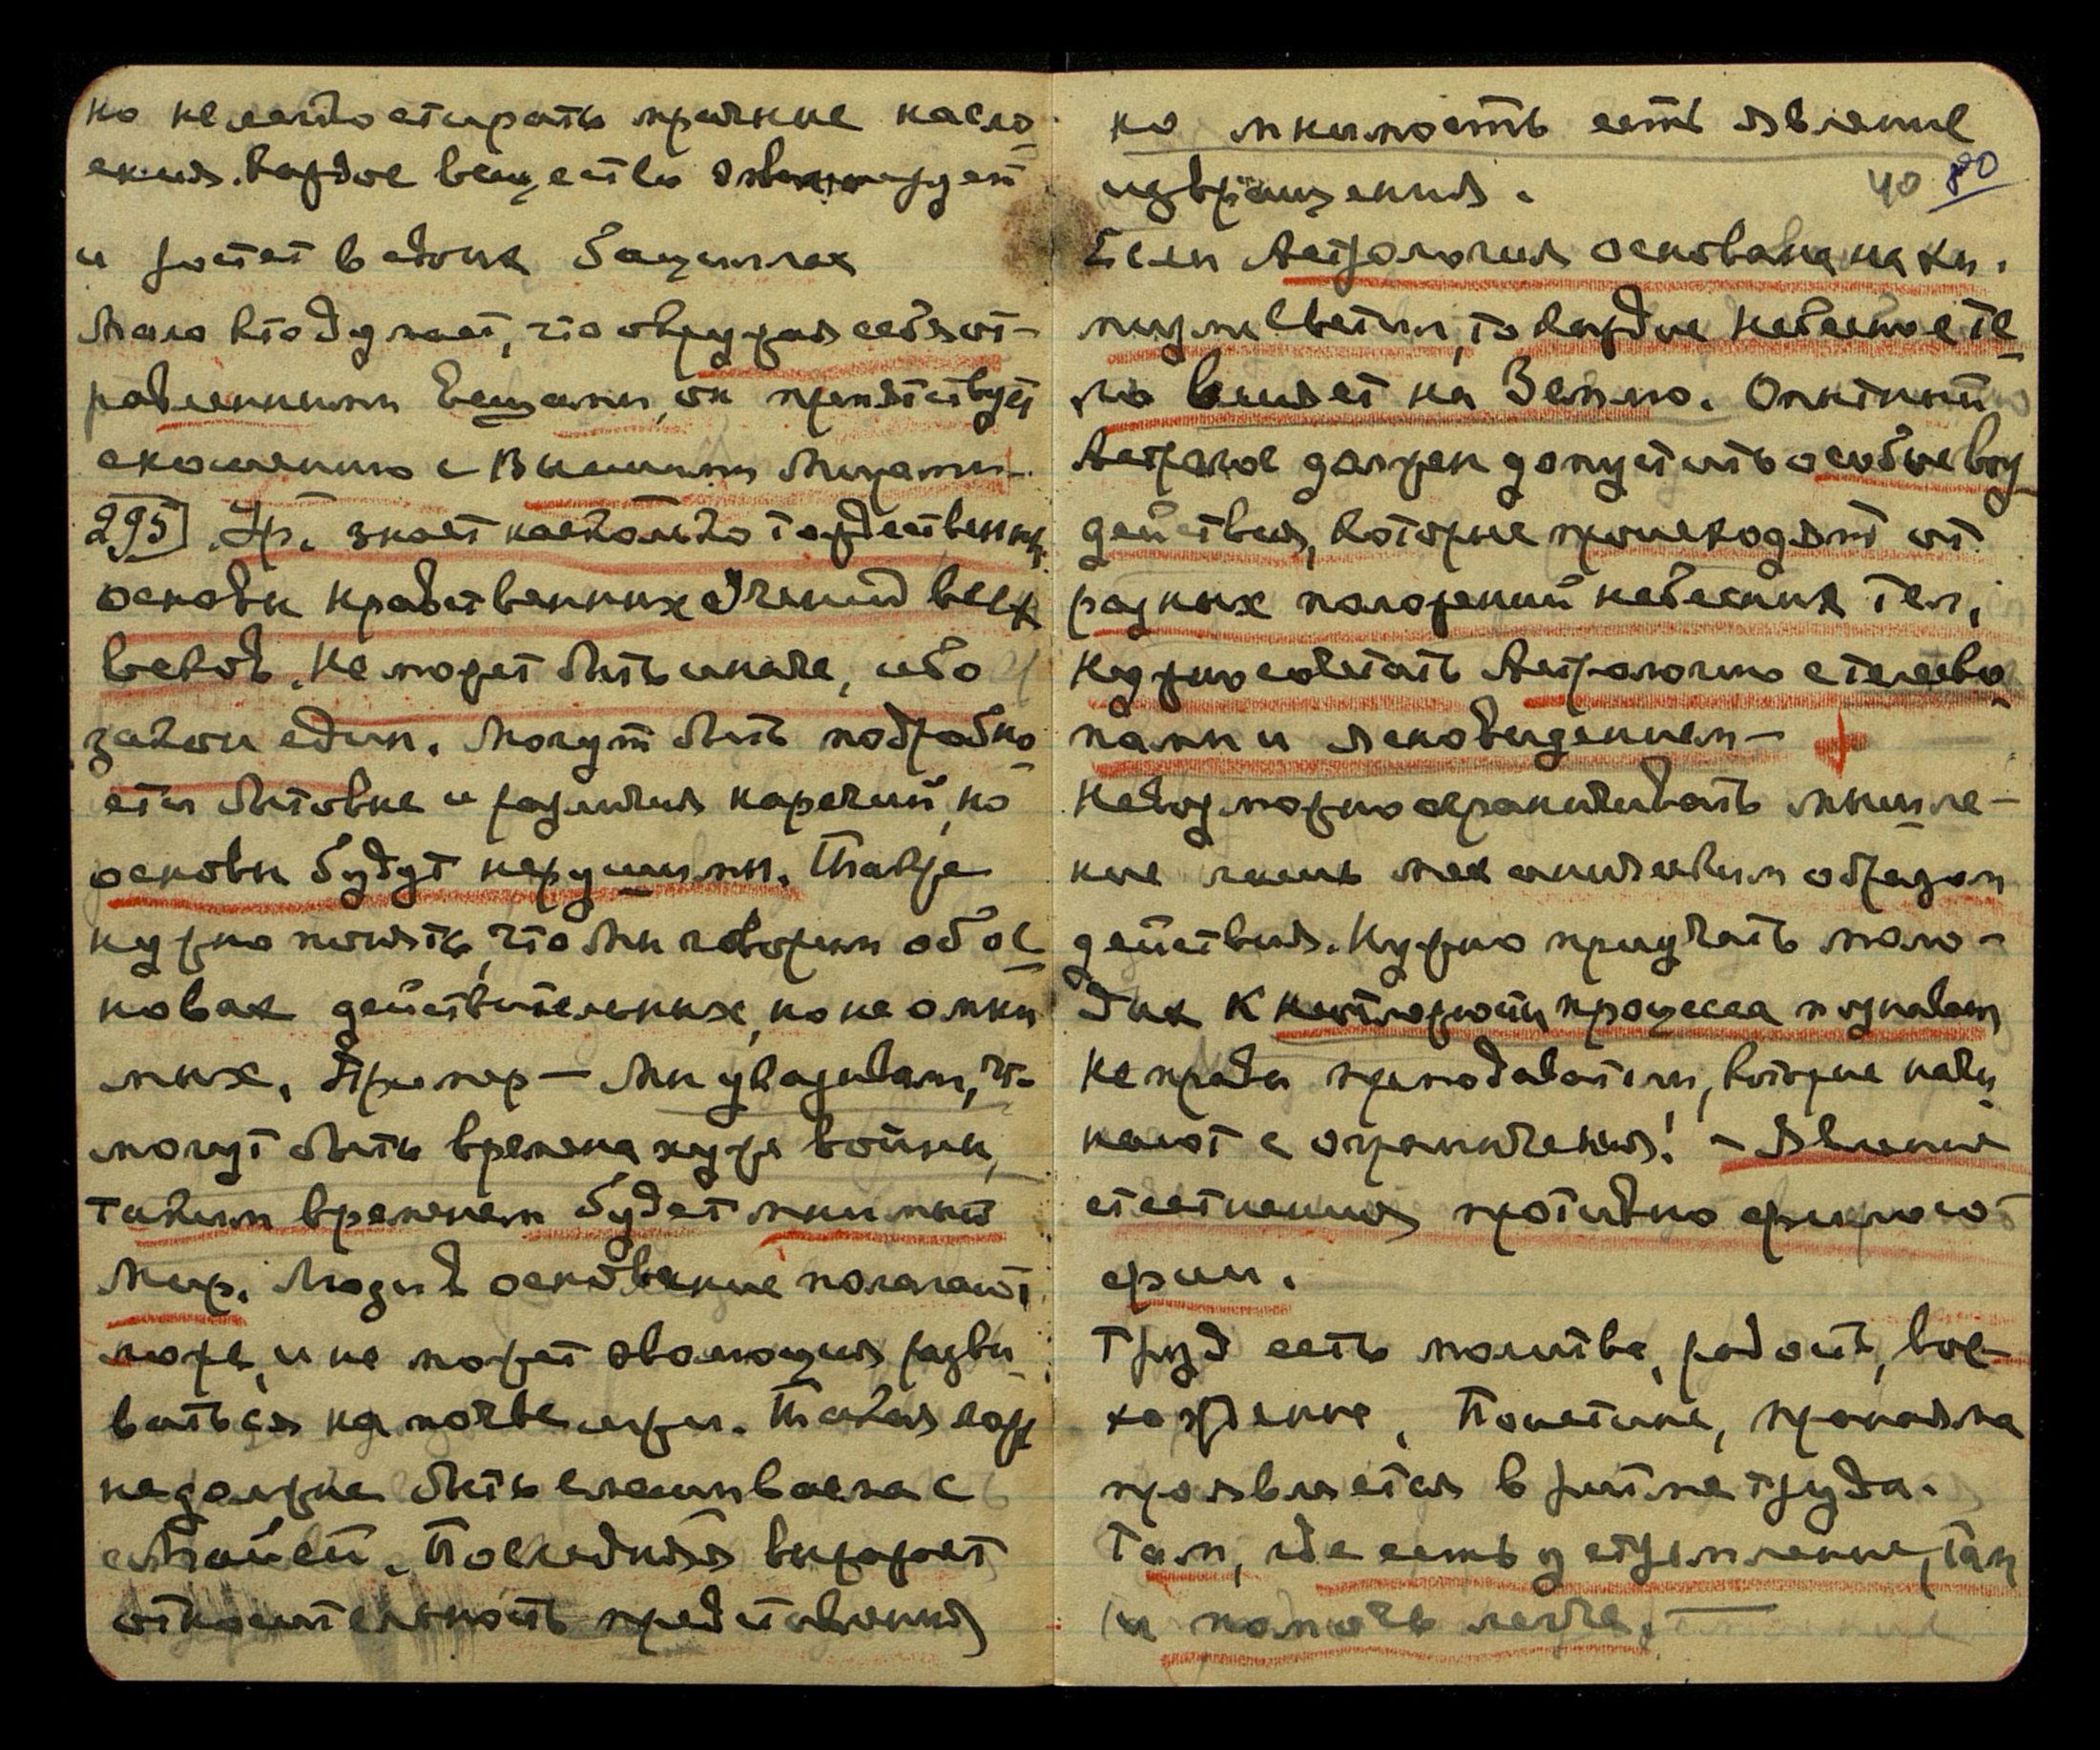 но нелегко стирать прежние насло
ения. Каждое вещество эманирует
и растет в своих бациллах
Мало кто думает, что окружая себя от-
равленными вещами, он препятствует
сношению с Высшими Мирами-
295]. Ур. знает насколько тождественны
основы нравственных Учений всех
веков. Не может быть иначе, ибо
закон един. Могут быть подробно
сти бытовые и различия наречий, но
основы будут нерушимы. Также
нужно понять, что Мы говорим об ос
новах действительных, но не о мни
мых. Пример — Мы указывали, что
могут быть времена хуже войны,
таким временем будет мнимый
Мир. Люди в основание полагают
ложь, и не может эволюция разви
ваться на почве лжи. Такая ложь
не должна быть смешиваема с
Майей. Последняя выражает
относительность представления
но мнимость есть явление
извращения.
40 80
Если Астрология основана на хи.
мизме Светил, то каждое небесное те
ло влияет на Землю. Опытный
Астролог должен допустить особые воз
действия, которые происходят от
разных положений небесных тел,
Нужно сочетать Астрологию с телеско
пами и ясновидением-
Невозможно ограничивать мышле-
ние лишь механическим образом
действия. Нужно приучать моло-
дых к неотложности процесса познавания
Не правы преподаватели, которые начи
нают с ограничения! - Явление
стеснения противно
Труд есть молитва, радость, вос-
хождение. Поистине, пранаяма
проявляется в ритме труда.
Там, где есть устремление, там
и помочь легче. —